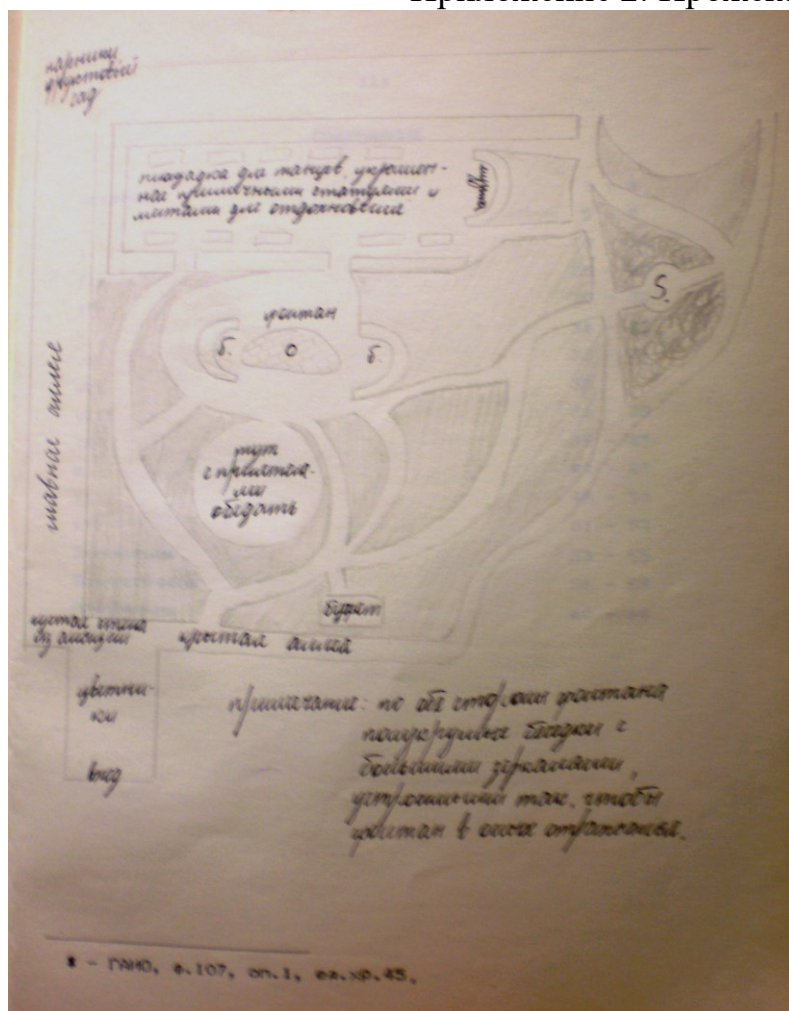 Приложение 2. Проек
парники
фруктовый
сад
площадка для танцев, украшен-
ная приличными статуями и
местами для отдохновения
фонтан
б.
б.
S.
главная аллея
тут
с приятеля-
ми
обедать
буфет
крытая аллея
цветни-
ки
вход
примечание: по обе стороны фонтана
полукруглые беседки с
большими зеркалами,
устроенными так, чтобы
фонтан в оных отражался.
* - ГАНО, ф.107, оп.1, ед.хр.45.